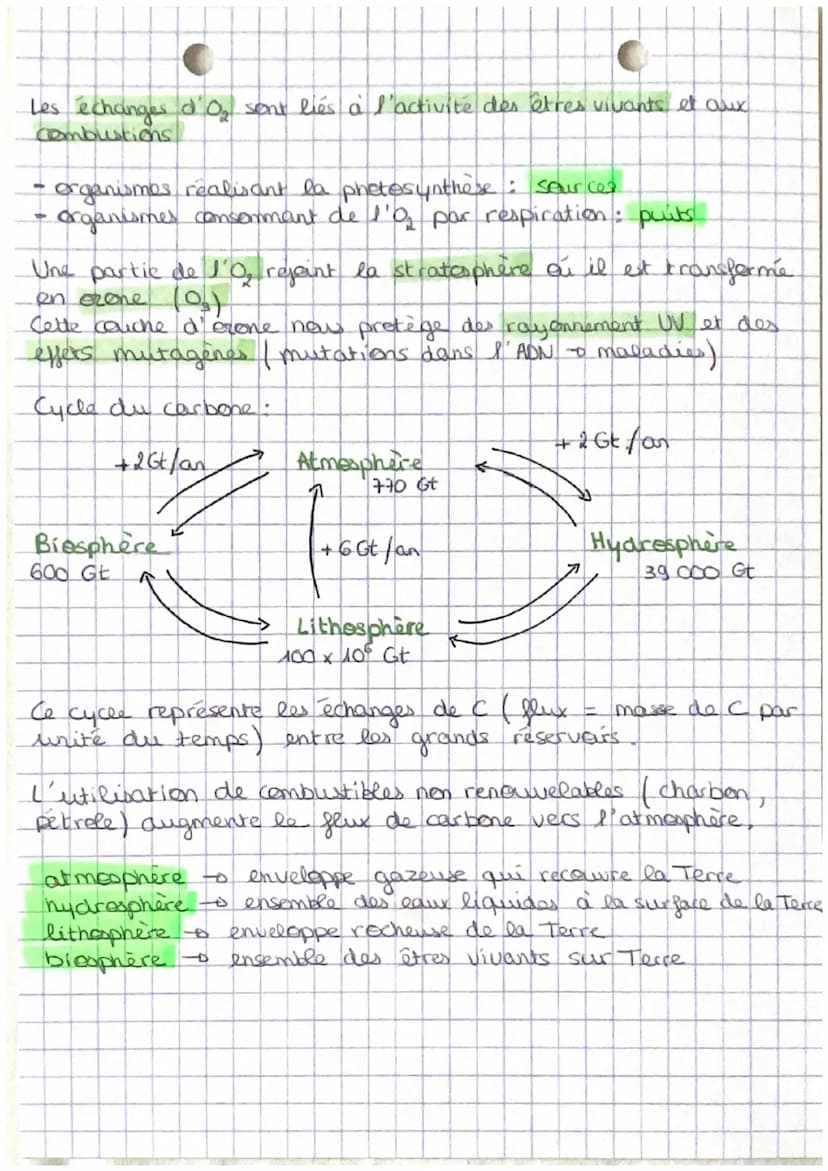 Les échanges d'O₂ sont liés à l'activité des êtres vivants et aux
combustions
- organismes réalisant la photosynthèse : sources
- organismes consommant de l'O₂ par respiration : puits
Une partie de l'O₂ rejoint la stratosphère où il est transformé
en ozone (O₃)
Cette couche d'ozone nous protège des rayonnement UV et des
effets mutagènes (mutations dans l'ADN → maladies)
Cycle du carbone :
+2Gt/an
Atmosphère
770 Gt
+2Gt/an
Biosphère
600 Gt
+6Gt/an
Hydrosphère
39 000 Gt
Lithosphère
100 x 10⁶ Gt
Ce cycle représente les échanges de C (flux = masse de C par
unité du temps) entre les grands réservoirs.
L'utilisation de combustibles non renouvelables (charbon,
pétrole) augmente le flux de carbone vers l'atmosphère.
atmosphère → enveloppe gazeuse qui recouvre la Terre
hydrosphère → ensemble des eaux liquides à la surface de la Terre
lithosphère → enveloppe rocheuse de la Terre
biosphère → ensemble des êtres vivants sur Terre